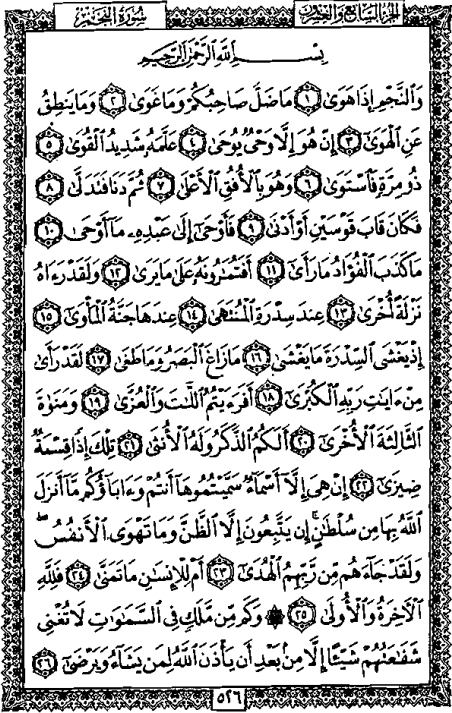 الجزء السابع والعشرون
سورة النجم
بسم الله الرحمن الرحيم
وَٱلنَّجْمِ إِذَا هَوَىٰ ١ مَا ضَلَّ صَاحِبُكُمْ وَمَا غَوَىٰ ٢ وَمَا يَنطِقُ
عَنِ ٱلْهَوَىٰٓ ٣ إِنْ هُوَ إِلَّا وَحْىٌ يُوحَىٰ ٤ عَلَّمَهُۥ شَدِيدُ ٱلْقُوَىٰ ٥
ذُو مِرَّةٍ فَٱسْتَوَىٰ ٦ وَهُوَ بِٱلْأُفُقِ ٱلْأَعْلَىٰ ٧ ثُمَّ دَنَا فَتَدَلَّىٰ ٨
فَكَانَ قَابَ قَوْسَيْنِ أَوْ أَدْنَىٰ ٩ فَأَوْحَىٰٓ إِلَىٰ عَبْدِهِۦ مَآ أَوْحَىٰ ١٠
مَا كَذَبَ ٱلْفُؤَادُ مَا رَأَىٰٓ ١١ أَفَتُمَٰرُونَهُۥ عَلَىٰ مَا يَرَىٰ ١٢ وَلَقَدْ رَءَاهُ
نَزْلَةً أُخْرَىٰ ١٣ عِندَ سِدْرَةِ ٱلْمُنتَهَىٰ ١٤ عِندَهَا جَنَّةُ ٱلْمَأْوَىٰٓ ١٥
إِذْ يَغْشَى ٱلسِّدْرَةَ مَا يَغْشَىٰ ١٦ مَا زَاغَ ٱلْبَصَرُ وَمَا طَغَىٰ ١٧ لَقَدْ رَأَىٰ
مِنْ ءَايَٰتِ رَبِّهِ ٱلْكُبْرَىٰٓ ١٨ أَفَرَءَيْتُمُ ٱللَّٰتَ وَٱلْعُزَّىٰ ١٩ وَمَنَوٰةَ
ٱلثَّالِثَةَ ٱلْأُخْرَىٰٓ ٢٠ أَلَكُمُ ٱلذَّكَرُ وَلَهُ ٱلْأُنثَىٰ ٢١ تِلْكَ إِذًا قِسْمَةٌ
ضِيزَىٰٓ ٢٢ إِنْ هِىَ إِلَّآ أَسْمَآءٌ سَمَّيْتُمُوهَآ أَنتُمْ وَءَابَآؤُكُم مَّآ أَنزَلَ
ٱللَّهُ بِهَا مِن سُلْطَٰنٍ ۚ إِن يَتَّبِعُونَ إِلَّا ٱلظَّنَّ وَمَا تَهْوَى ٱلْأَنفُسُ ۖ
وَلَقَدْ جَآءَهُم مِّن رَّبِّهِمُ ٱلْهُدَىٰٓ ٢٣ أَمْ لِلْإِنسَٰنِ مَا تَمَنَّىٰ ٢٤ فَلِلَّهِ
ٱلْءَاخِرَةُ وَٱلْأُولَىٰ ٢٥ ۞ وَكَم مِّن مَّلَكٍ فِى ٱلسَّمَٰوَٰتِ لَا تُغْنِى
شَفَٰعَتُهُمْ شَيْـًٔا إِلَّا مِنۢ بَعْدِ أَن يَأْذَنَ ٱللَّهُ لِمَن يَشَآءُ وَيَرْضَىٰٓ ٢٦
٥٢٦